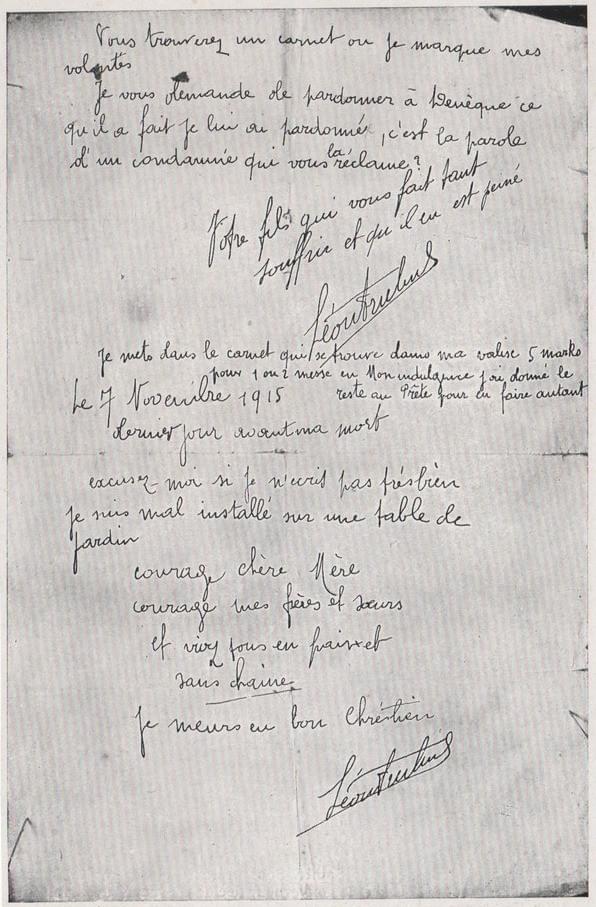 Vous trouverez un carnet ou je marque mes
volontés
Je vous demande de pardonner à Denèque ce
qu'il a fait je lui ai pardonné, c'est la parole
d'un condamné qui vous la réclame ?
Votre fils qui vous fait tant
souffrir et qu'il en est peiné
Léon Trulin
Je mets dans le carnet qui se trouve dans ma valise 5 marks
pour 1 ou 2 messe en Mon indulgence j'ai donné le
reste au Prête pour en faire autant
Le 7 Novembre 1915
dernier jour avant ma mort
excusez-moi si je n'ecris pas très bien
je suis mal installé sur une table de
jardin
courage chère Mère
courage mes frères et sœurs
et vivez tous en paix et
sans chaine
Je meurs en bon Chrétien
Léon Trulin